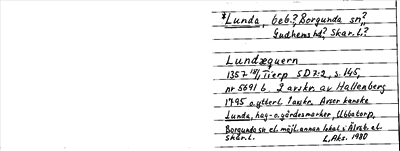 *Lunda, beb.? Borgunda sn?
Gudhems hd? Skar. l.?
Lundæquern
1357 Tierp SD7:2, s. 145,
nr 5691 b. 2 avskr. av Hallenberg
1795 o. ytterl. 1 avskr. Avser kanske
Lunda, hag- o. gärdesmarker, Ubbatorp,
Borgunda sn el. möjl. annan lokal i Älvsb. el.
Skar. l. L. Aks. 1980